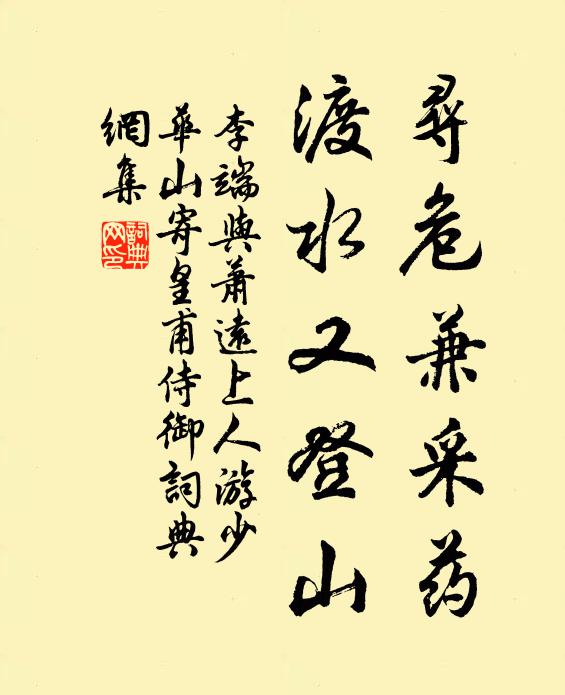 尋危兼采药
渡水又登山
李端與萧遠上人游少
華山寄皇甫侍御詞典
網集
詞典
网印